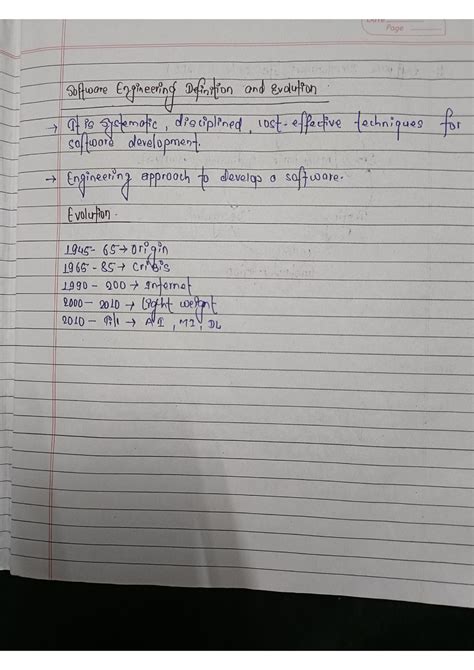 Date
Page
Software Engineering Definition and Evolution
→ It is systematic, disciplined, cost-effective techniques for
software development.
→ Engineering approach to develop a software.
Evolution.
1945-65 → Origin
1965-85 → Crisis
1990-200 → Internet
2000-2010 → Light weight
2010- → AI, ML, DL